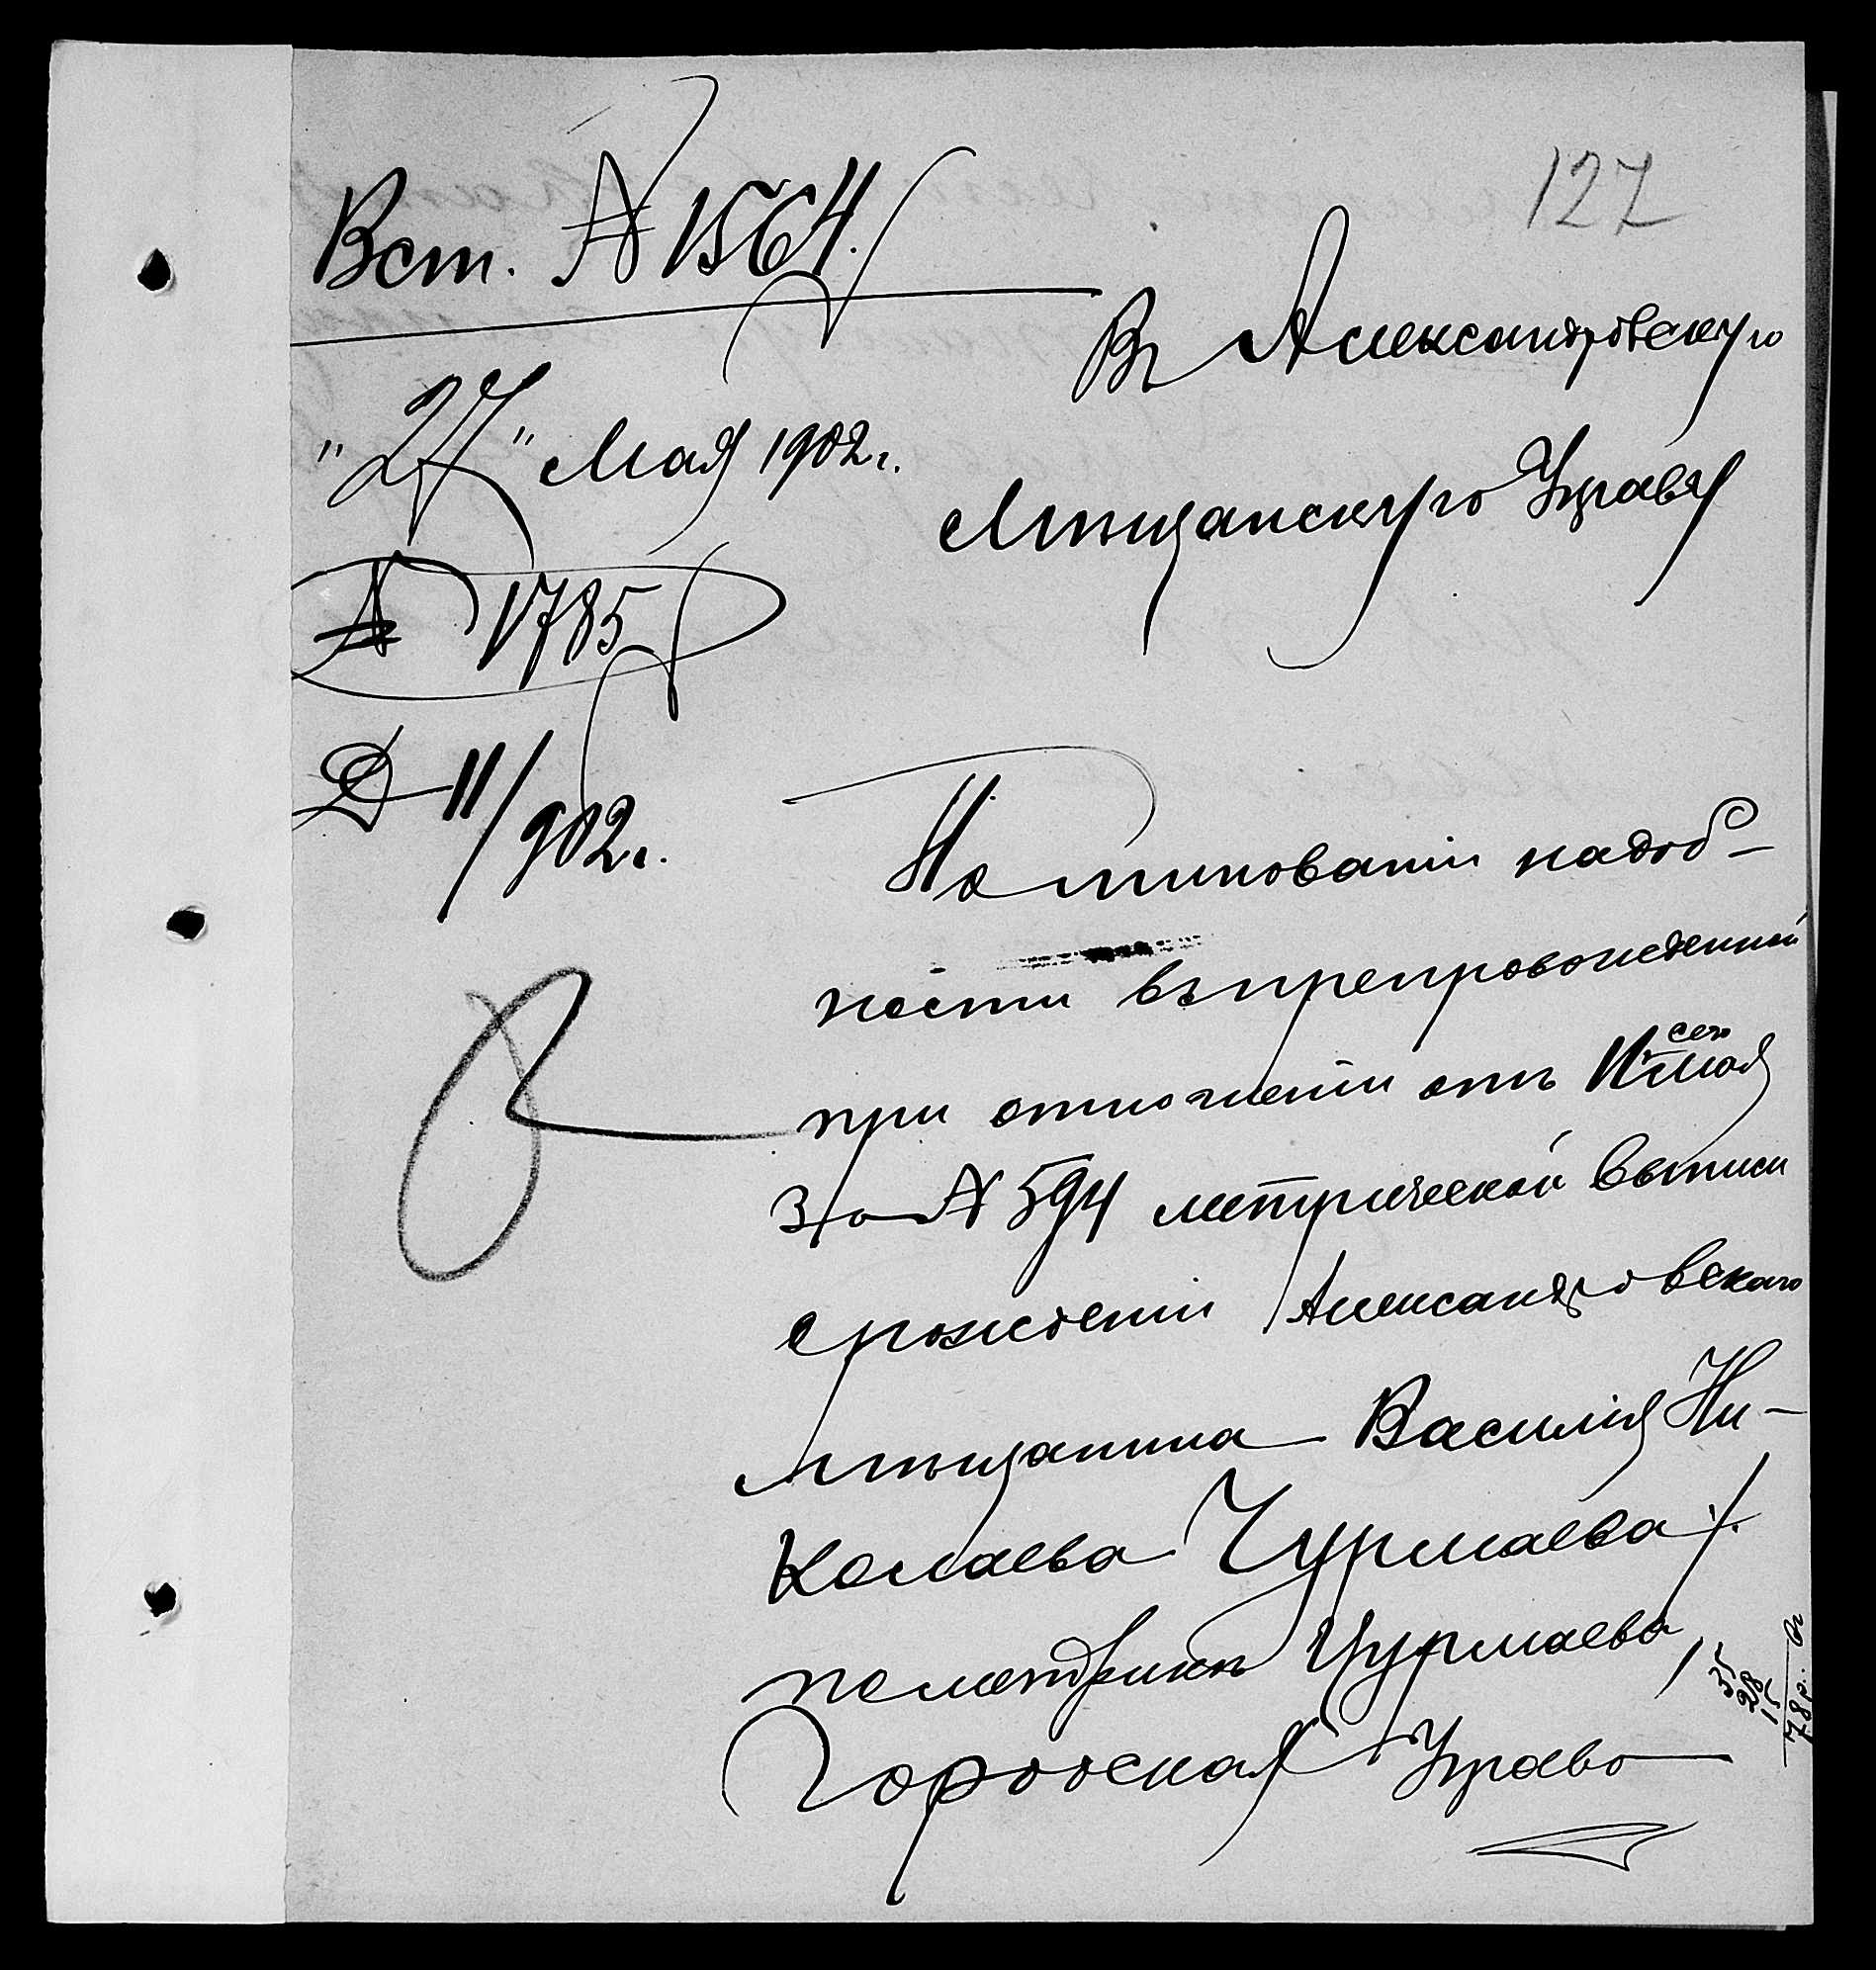 127
Вст. № 1564.
"27" Мая 1902 г.
№ 1785
Д 11/902 г.
Въ Александровскую
Мѣщанскую Управу
По минованіи надоб-
ности въ препровожденной
при отношеніи отъ 11 сего Мая
за № 594 метрической выписи
о рожденіи Александровскаго
мѣщанина Василія Ни-
колаева Чурмаева /.
по метрикѣ Цурмаева /
Городская Управа
35
28
15
78 р.